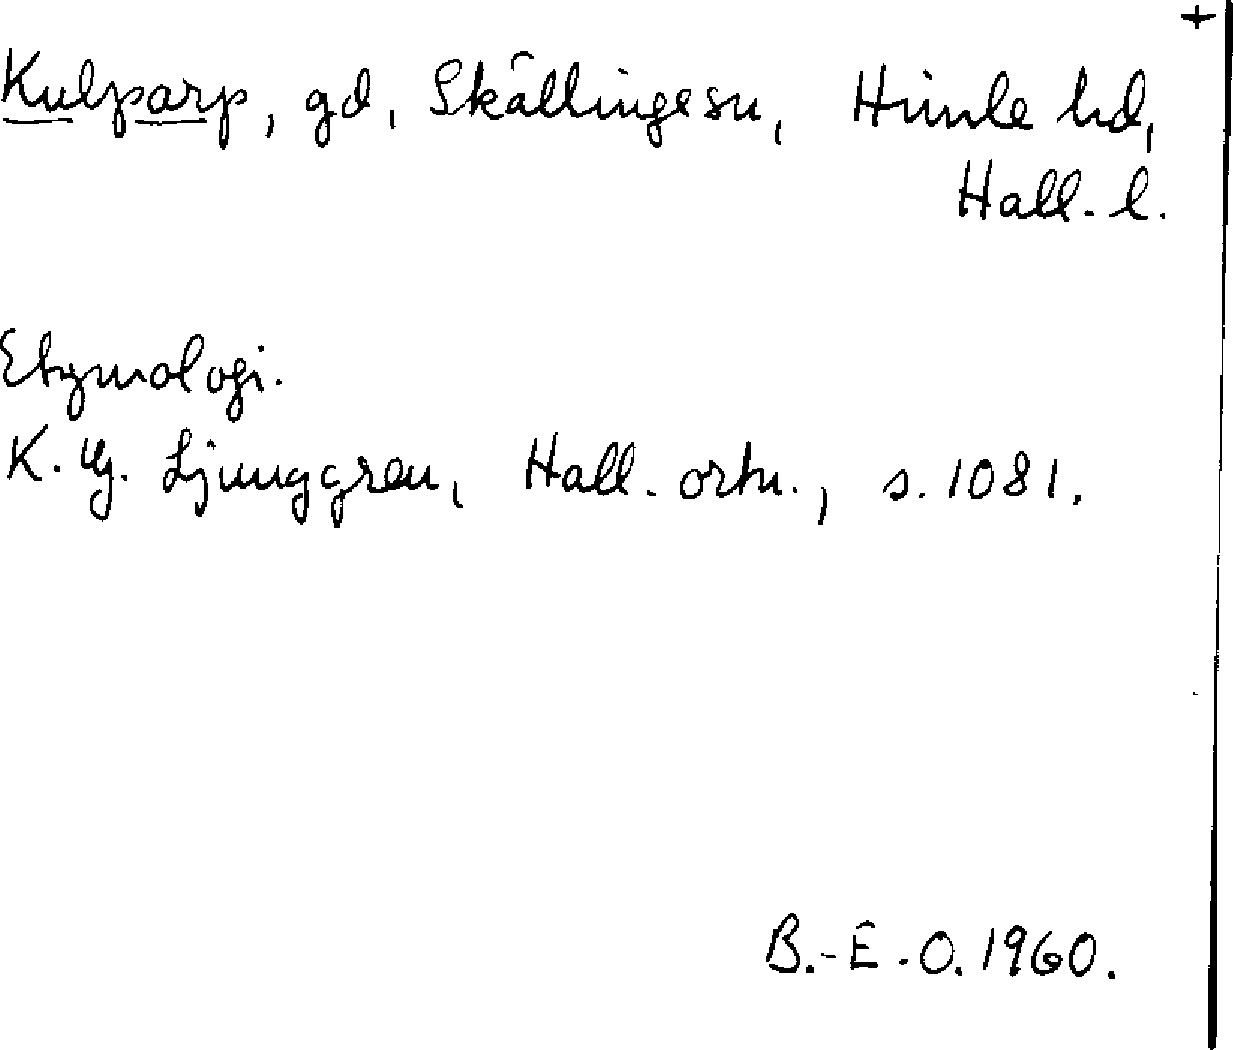 +
Kulparp, gd, Skällinge sn, Himle hd,
Hall. l.
Etymologi.
K. G. Ljunggren, Hall. ortn., s. 1081.
B.-E. O. 1960.